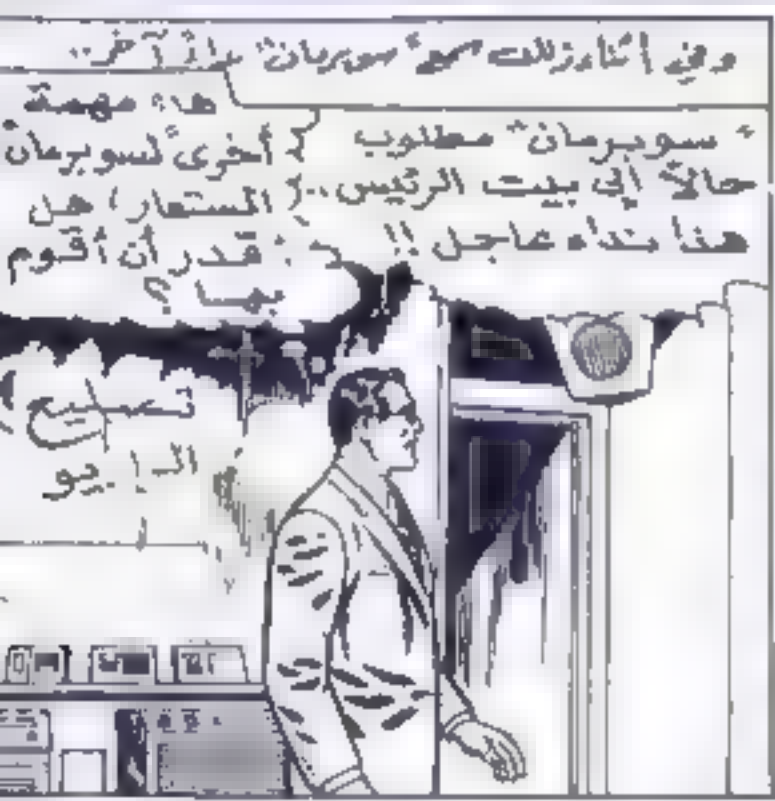 وفي أثناء ذلك سمع "سوبرمان" نداء آخر..
"سوبرمان" مطلوب
حالاً إلى بيت الرئيس..
هذا نداء عاجل !!
هذه مهمة
أخرى لسوبرمان
المستعار! هل
يقدر أن أقوم
بها ؟
تصليح